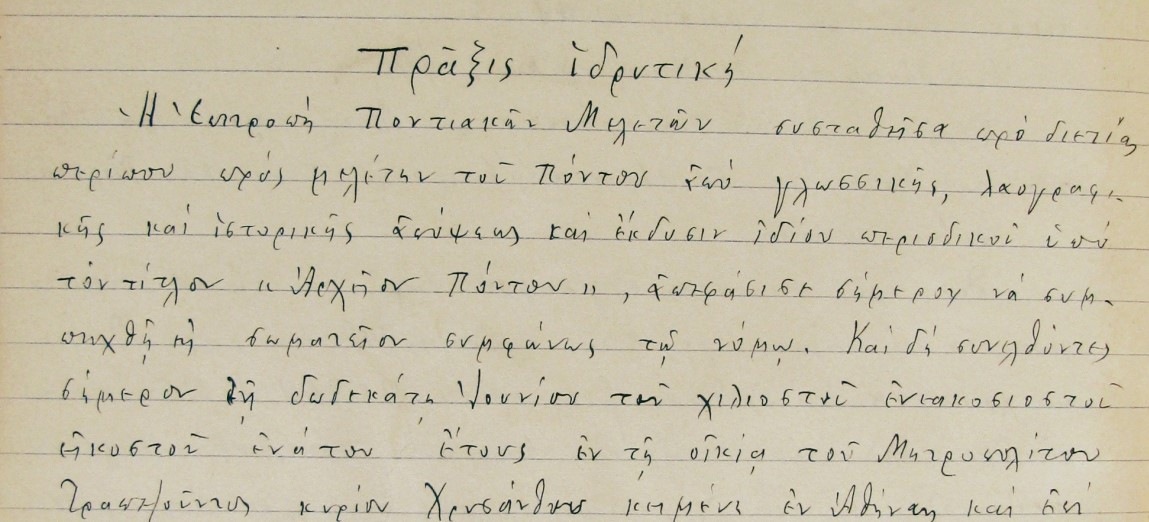 Πρᾶξις ἱδρυτική
Ἡ Ἐπιτροπὴ Ποντιακῶν Μελετῶν συσταθεῖσα πρὸ διετίας
περίπου πρὸς μελέτην τοῦ Πόντου ἀπὸ γλωσσικῆς, λαογραφι-
κῆς καὶ ἱστορικῆς ἀπόψεως καὶ ἔκδοσιν ἰδίου περιοδικοῦ ὑπὸ
τὸν τίτλον «Ἀρχεῖον Πόντου», ἀπεφάσισε σήμερον νὰ συμ-
πηχθῇ εἰς σωματεῖον συμφώνως τῷ νόμῳ. Καὶ δὴ συνελθόντες
σήμερον τῇ δωδεκάτῃ Ἰουνίου τοῦ χιλιοστοῦ ἐνεακοσιοστοῦ
εἰκοστοῦ ἐνάτου ἔτους ἐν τῇ οἰκίᾳ τοῦ Μητροπολίτου
Τραπεζοῦντος κυρίου Χρυσάνθου κειμένῃ ἐν Ἀθήναις καὶ ἐπὶ